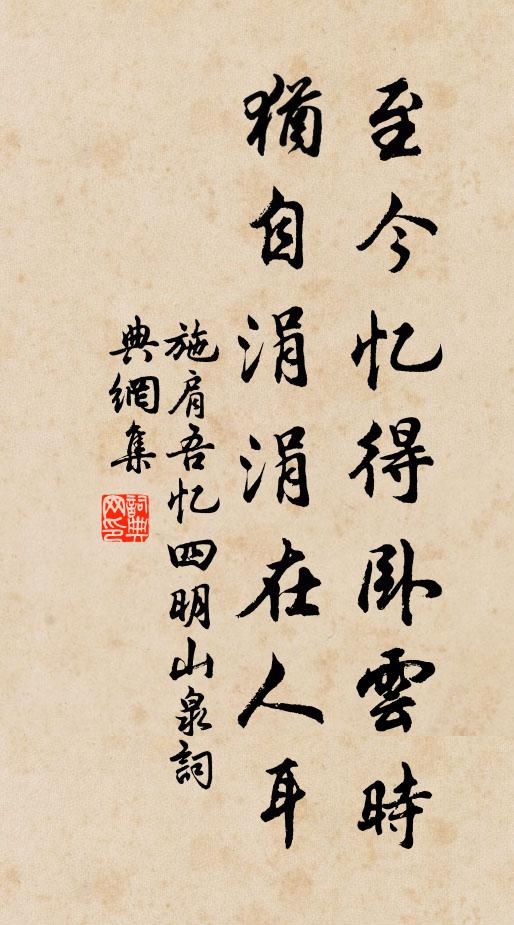 至今忆得卧雲時
猶自涓涓在人耳
施肩吾忆四明山泉詞
典網集
詞典網印